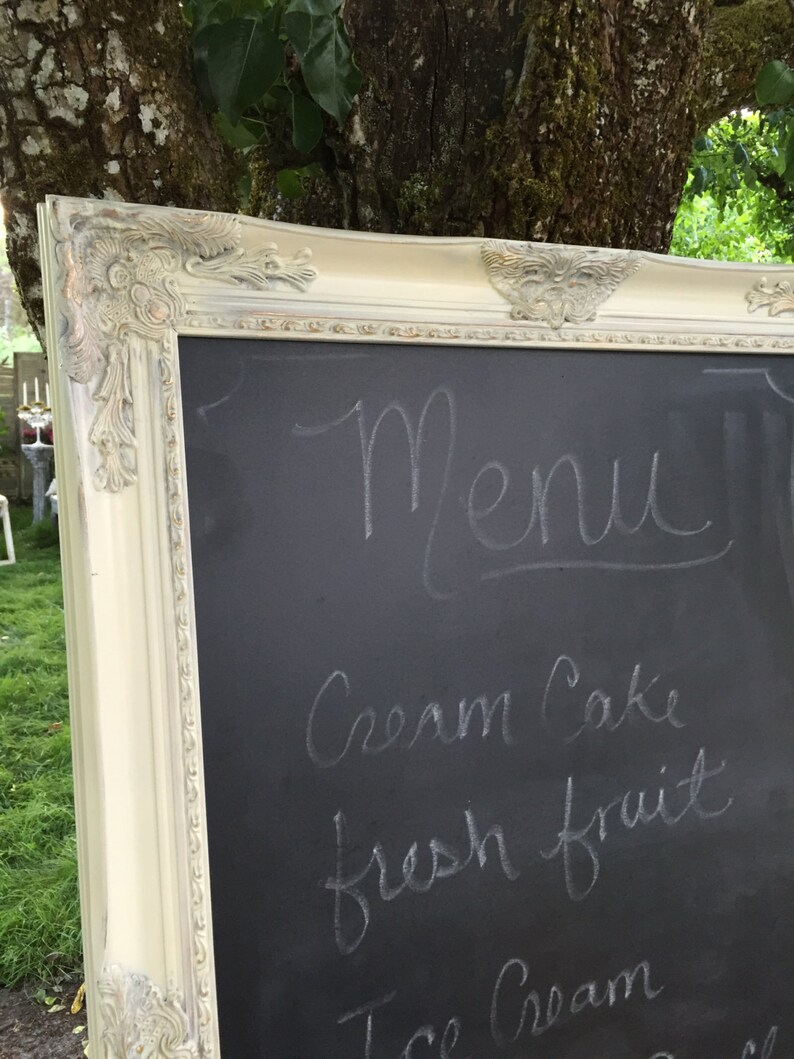 Menu
Cream Cake
fresh fruit
Ice Cream